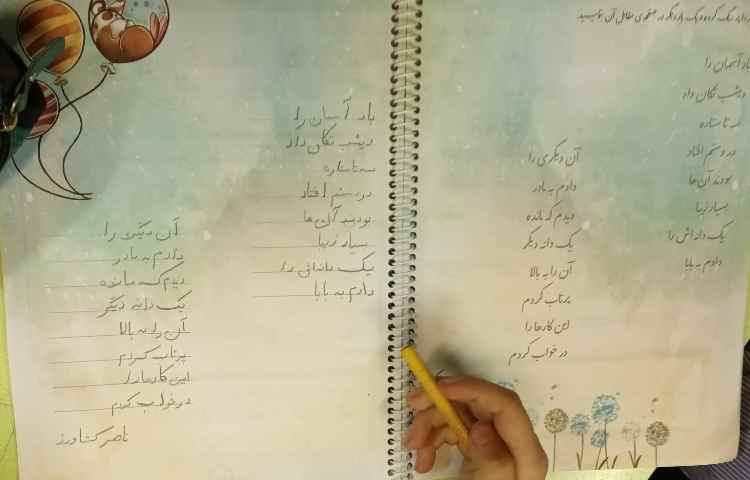 باد آسمان را
دیشب تکان داد
سه تا ستاره
در دستم افتاد
بودند آن‌ها
بسیار زیبا
یک دانه‌اش را
دادم به بابا
آن دیگری را
دادم به مادر
دیدم که مانده
یک دانه دیگر
آن را به بالا
پرتاب کردم
این کارها را
در خواب کردم
باد آسمان را
دیشب تکان داد
سه تا ستاره
در دستم افتاد
بودند آن‌ها
بسیار زیبا
یک دانه‌اش را
دادم به بابا
آن دیگری را
دادم به مادر
دیدم که مانده
یک دانه دیگر
آن را به بالا
پرتاب کردم
این کارها را
در خواب کردم
ناصر کشاورز